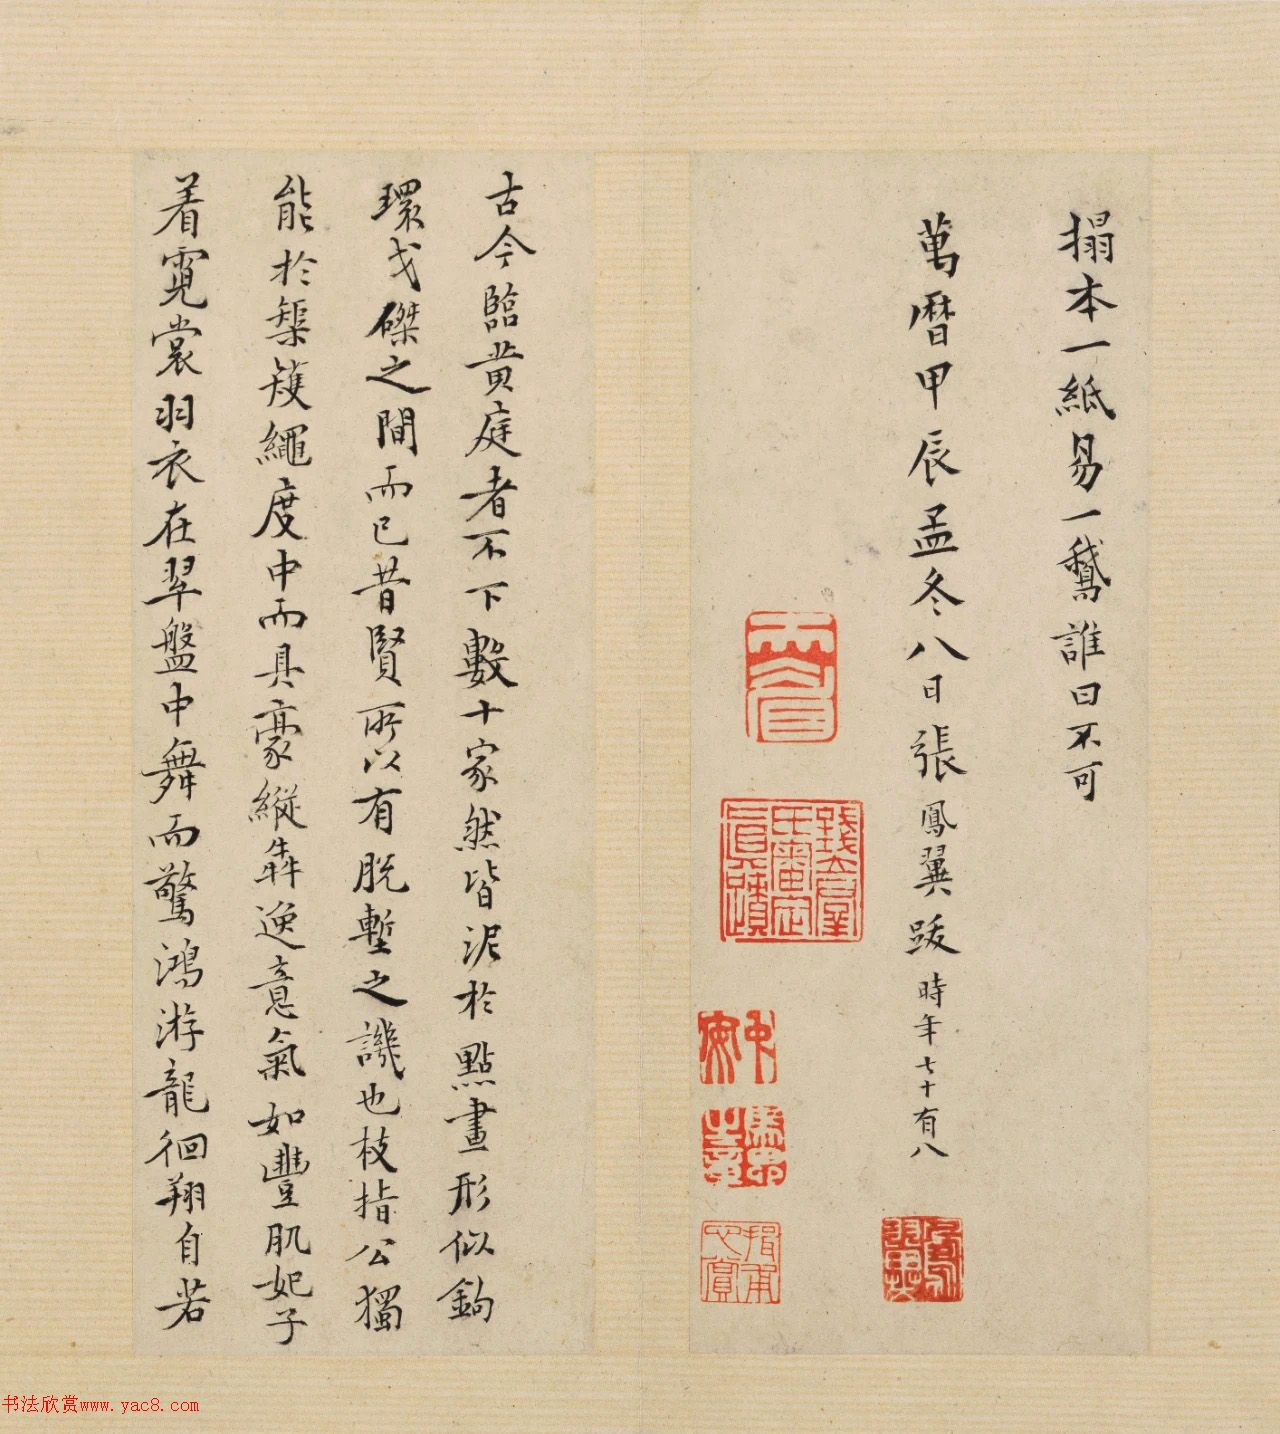 搨本一紙易一鵞誰曰不可
萬曆甲辰孟冬八日張鳳翼跋時年七十有八
古今臨黃庭者不下數十家然皆泥於點畫形似鉤
環戈磔之間而已昔賢所以有脱塹之譏也枝指公獨
能於榘矱繩度中而具豪縱犇逸意氣如豐肌妃子
着霓裳羽衣在翠盤中舞而驚鴻游龍徊翔自若
书法欣赏www.yac8.com